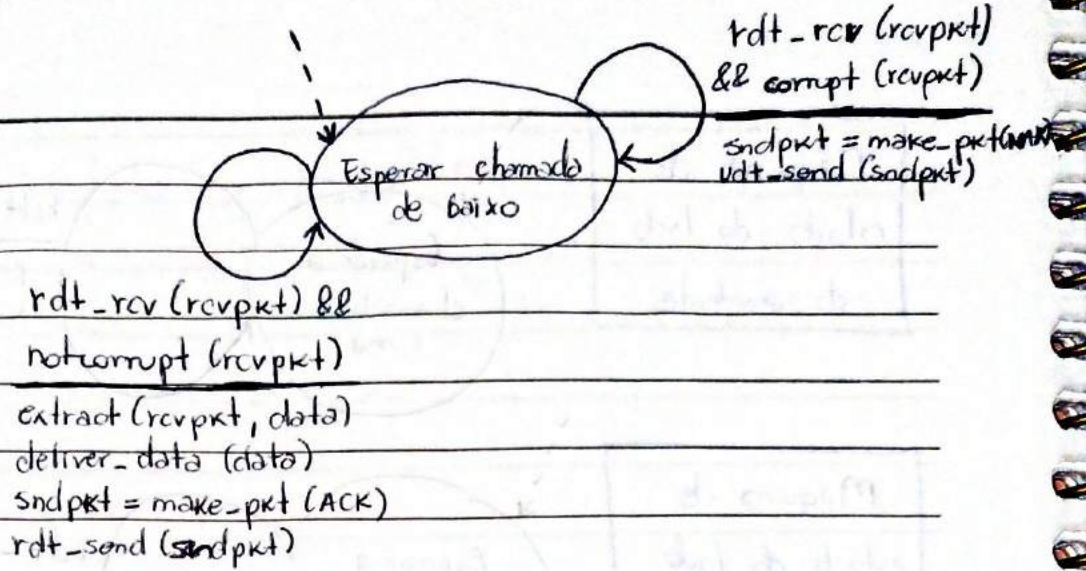 rdt_rcv (rcvpkt)
&& corrupt (rcvpkt)
sndpkt = make_pkt(
udt_send (sndpkt)
Esperar chamada
de baixo
rdt_rcv (rcvpkt) &&
notcorrupt (rcvpkt)
extract (rcvpkt, data)
deliver_data (data)
sndpkt = make_pkt (ACK)
rdt_send (sndpkt)